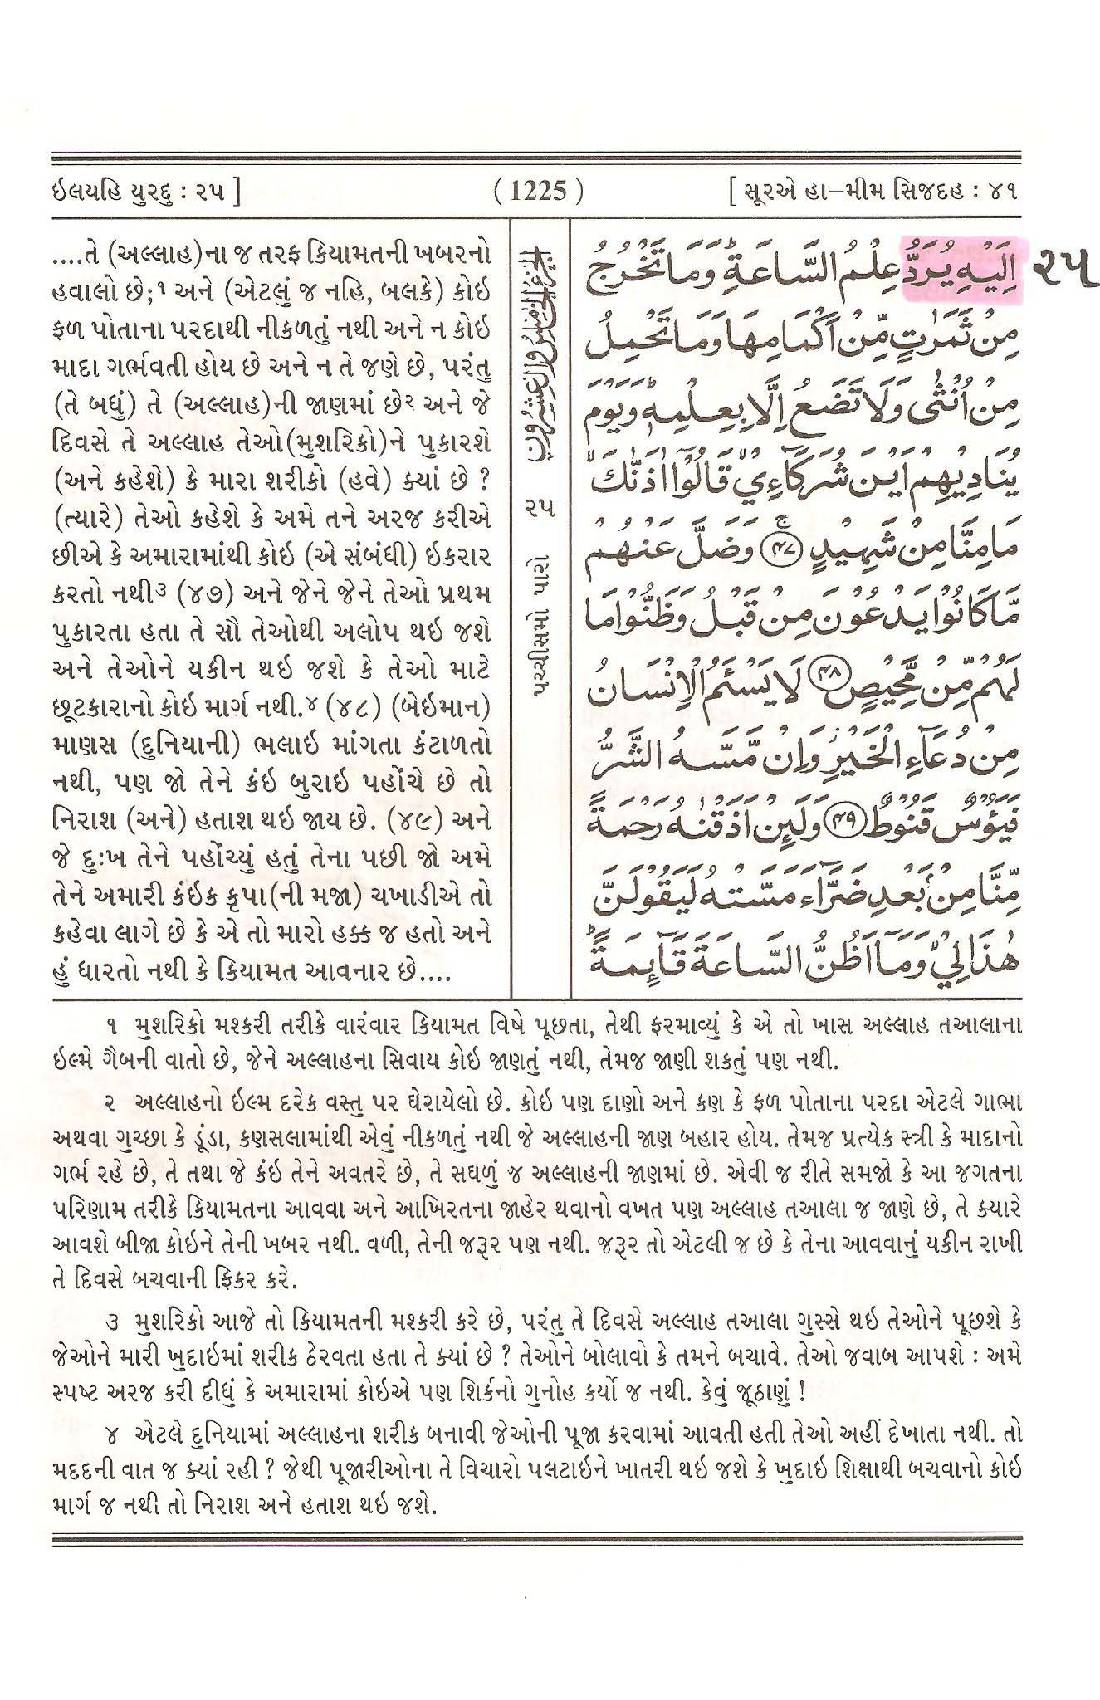 ઇલયહિ યુરદ્દુ : ૨૫ ]
( 1225 )
[ સૂરએ હા–મીમ સિજદહ : ૪૧
....તે (અલ્લાહ)ના જ તરફ કિયામતની ખબરનો
હવાલો છે;૧ અને (એટલું જ નહિ, બલકે) કોઇ
ફળ પોતાના પરદાથી નીકળતું નથી અને ન કોઇ
માદા ગર્ભવતી હોય છે અને ન તે જણે છે, પરંતુ
(તે બધું) તે (અલ્લાહ)ની જાણમાં છે૨ અને જે
દિવસે તે અલ્લાહ તેઓ(મુશરિકો)ને પુકારશે
(અને કહેશે) કે મારા શરીકો (હવે) ક્યાં છે ?
(ત્યારે) તેઓ કહેશે કે અમે તને અરજ કરીએ
છીએ કે અમારામાંથી કોઇ (એ સંબંધી) ઇકરાર
કરતો નથી૩ (૪૭) અને જેને જેને તેઓ પ્રથમ
પુકારતા હતા તે સૌ તેઓથી અલોપ થઇ જશે
અને તેઓને યકીન થઇ જશે કે તેઓ માટે
છૂટકારાનો કોઇ માર્ગ નથી.૪ (૪૮) (બેઇમાન)
માણસ (દુનિયાની) ભલાઇ માંગતા કંટાળતો
નથી, પણ જો તેને કંઇ બુરાઇ પહોંચે છે તો
નિરાશ (અને) હતાશ થઇ જાય છે. (૪૯) અને
જે દુઃખ તેને પહોંચ્યું હતું તેના પછી જો અમે
તેને અમારી કંઇક કૃપા(ની મજા) ચખાડીએ તો
કહેવા લાગે છે કે એ તો મારો હક્ક જ હતો અને
હું ધારતો નથી કે કિયામત આવનાર છે....
૨૫
પચ્ચીસમો પારો
اِلَيْهِ يُرَدُّ عِلْمُ السَّاعَةِ ؕ وَمَا تَخْرُجُ
૨૫
مِنْ ثَمَرٰتٍ مِّنْ اَكْمَامِهَا وَمَا تَحْمِلُ
مِنْ اُنْثٰى وَلَا تَضَعُ اِلَّا بِعِلْمِهٖ ؕ وَيَوْمَ
يُنَادِيْهِمْ اَيْنَ شُرَكَآءِيْ ۙ قَالُوْۤا اٰذَنّٰكَ ۙ
مَا مِنَّا مِنْ شَهِيْدٍ ۚ ﴿۴۷﴾ وَضَلَّ عَنْهُمْ
مَّا كَانُوْا يَدْعُوْنَ مِنْ قَبْلُ وَظَنُّوْا مَا
لَهُمْ مِّنْ مَّحِيْصٍ ﴿۴۸﴾ لَا يَسْئَمُ الْاِنْسَانُ
مِنْ دُعَآءِ الْخَيْرِ ۫ وَاِنْ مَّسَّهُ الشَّرُّ
فَيَئُوْسٌ قَنُوْطٌ ﴿۴۹﴾ وَلَئِنْ اَذَقْنٰهُ رَحْمَةً
مِّنَّا مِنْۢ بَعْدِ ضَرَّآءَ مَسَّتْهُ لَيَقُوْلَنَّ
هٰذَا لِيْ ۙ وَمَاۤ اَظُنُّ السَّاعَةَ قَآئِمَةً ۙ
૧ મુશરિકો મશ્કરી તરીકે વારંવાર કિયામત વિષે પૂછતા, તેથી ફરમાવ્યું કે એ તો ખાસ અલ્લાહ તઆલાના
ઇલ્મે ગૈબની વાતો છે, જેને અલ્લાહના સિવાય કોઇ જાણતું નથી, તેમજ જાણી શકતું પણ નથી.
૨ અલ્લાહનો ઇલ્મ દરેક વસ્તુ પર ઘેરાયેલો છે. કોઇ પણ દાણો અને કણ કે ફળ પોતાના પરદા એટલે ગાભા
અથવા ગુચ્છા કે ડૂંડા, કણસલામાંથી એવું નીકળતું નથી જે અલ્લાહની જાણ બહાર હોય. તેમજ પ્રત્યેક સ્ત્રી કે માદાનો
ગર્ભ રહે છે, તે તથા જે કંઇ તેને અવતરે છે, તે સઘળું જ અલ્લાહની જાણમાં છે. એવી જ રીતે સમજો કે આ જગતના
પરિણામ તરીકે કિયામતના આવવા અને આખિરતના જાહેર થવાનો વખત પણ અલ્લાહ તઆલા જ જાણે છે, તે ક્યારે
આવશે બીજા કોઇને તેની ખબર નથી. વળી, તેની જરૂર પણ નથી. જરૂર તો એટલી જ છે કે તેના આવવાનું યકીન રાખી
તે દિવસે બચવાની ફિકર કરે.
૩ મુશરિકો આજે તો કિયામતની મશ્કરી કરે છે, પરંતુ તે દિવસે અલ્લાહ તઆલા ગુસ્સે થઇ તેઓને પૂછશે કે
જેઓને મારી ખુદાઇમાં શરીક ઠેરવતા હતા તે ક્યાં છે ? તેઓને બોલાવો કે તમને બચાવે. તેઓ જવાબ આપશે : અમે
સ્પષ્ટ અરજ કરી દીધું કે અમારામાં કોઇએ પણ શિર્કનો ગુનોહ કર્યો જ નથી. કેવું જૂઠાણું !
૪ એટલે દુનિયામાં અલ્લાહના શરીક બનાવી જેઓની પૂજા કરવામાં આવતી હતી તેઓ અહીં દેખાતા નથી. તો
મદદની વાત જ ક્યાં રહી ? જેથી પૂજારીઓના તે વિચારો પલટાઇને ખાતરી થઇ જશે કે ખુદાઇ શિક્ષાથી બચવાનો કોઇ
માર્ગ જ નથી તો નિરાશ અને હતાશ થઇ જશે.